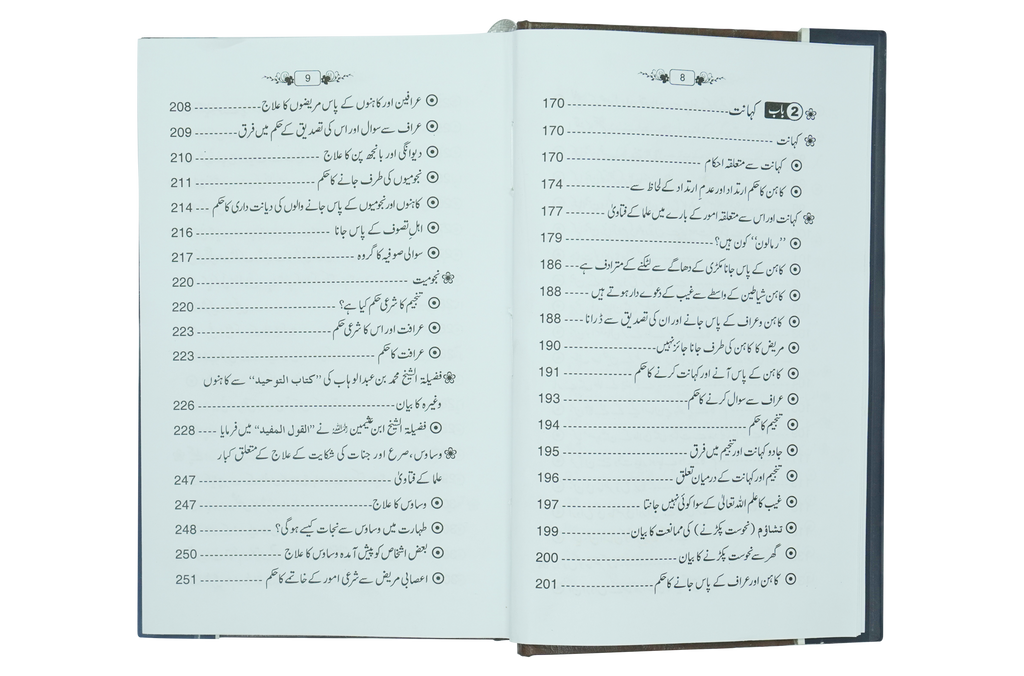 8
باب 2 کہانت 170
کہانت 170
کہانت سے متعلقہ احکام 170
کاہن کا حکم ارتداد اور عدمِ ارتداد کے لحاظ سے 174
کہانت اور اس سے متعلقہ امور کے بارے میں علما کے فتاویٰ 177
’’رمالون‘‘ کون ہیں؟ 179
کاہن کے پاس جانا مکڑی کے دھاگے سے لٹکنے کے مترادف ہے 186
کاہن شیاطین کے واسطے سے غیب کے دعوے دار ہوتے ہیں 188
کاہن و عراف کے پاس جانے اور ان کی تصدیق سے ڈرانا 188
مریض کا کاہن کی طرف جانا جائز نہیں 190
کاہن کے پاس آنے اور کہانت کرنے کا حکم 191
عراف سے سوال کرنے کا حکم 193
تنجیم کا حکم 194
جادو کہانت اور تنجیم میں فرق 195
تنجیم اور کہانت کے درمیان تعلق 196
غیب کا علم اللہ تعالیٰ کے سوا کوئی نہیں جانتا 197
تشاؤم (نحوست پکڑنے) کی ممانعت کا بیان 199
گھر سے نحوست پکڑنے کا بیان 200
کاہن اور عراف کے پاس جانے کا حکم 201
9
عرافین اور کاہنوں کے پاس مریضوں کا علاج 208
عراف سے سوال اور اس کی تصدیق کے حکم میں فرق 209
دیوانگی اور بانجھ پن کا علاج 210
نجومیوں کی طرف جانے کا حکم 211
کاہنوں اور نجومیوں کے پاس جانے والوں کی دیانت داری کا حکم 214
اہلِ تصوف کے پاس جانا 216
سوالی صوفیہ کا گروہ 217
نجومیت 220
تنجیم کا شرعی حکم کیا ہے؟ 220
عرافت اور اس کا شرعی حکم 223
عرافت کا حکم 223
فضیلۃ الشیخ محمد بن عبدالوہاب کی ’’کتاب التوحید‘‘ سے کاہنوں
وغیرہ کا بیان 226
فضیلۃ الشیخ ابن عثیمین رحمہ اللہ نے ’’القول المفید‘‘ میں فرمایا 228
وساوس، صرع اور جنات کی شکایت کے علاج کے متعلق کبار
علما کے فتاویٰ 247
وساوس کا علاج 247
طہارت میں وساوس سے نجات کیسے ہوگی؟ 248
بعض اشخاص کو پیش آمدہ وساوس کا علاج 250
اعصابی مریض سے شرعی امور کے خاتمے کا حکم 251